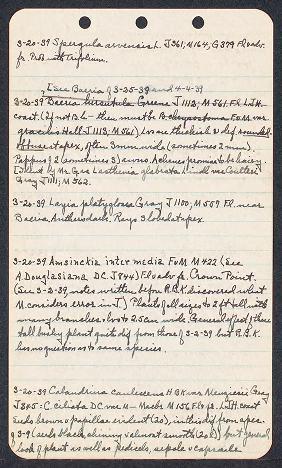 3-20-39 Spergula arvensis L. J361, M164, G379 Fl. odv.
fr. with trifolium.
[See Baeria of 3-25-39 and 4-4-39
3-20-39 Baeria hirsutula Greene J1112; M561. Fl. L.J.H.
coast. (If not B.h- then must be B. chrysostoma F&M. var
gracilis Hall J1113; M561) Lvs are thickish & def rounded
obtuse at apex, often 3mm wide (sometimes 2mm).
Pappus of 2 (sometimes 3) awns. Achenes promise to be hairy.
by Mr. Gray Lasthenia glabrata Lindl var Coulteri
Gray J1111; M562.
3-20-39 Layia platyglossa Gray J1100; M509 Fl. near
Baeria. Anthers dark. Rays 3 lobed at apex.
3-20-39 Amsinckia intermedia F&M. M422 (See
A. Douglasiana DC. J844) Fl odv fr. Crown Point.
(See 3-2-39, notes written before R.B.K. discovered what
M. considers error in J.) Plants of all sizes to 2 ft tall with
many branches. lvs to 2.5cm wide. General aspect of these
tall bushy plants quite dif from those of 3-2-39 but R.B.K.
has no question as to same species.
3-20-39 Calandrinia caulescens HBK var Menziesii Gray
J365 - C. ciliata DC var M- Macbr M156 Fl & fr. L.J.H. coast
Seeds brown & papillae evident (20x), in this dif from spec.
of 3-9 (seeds black, shiny & almost smooth (20x)) but general
look of plant as well as pedicels, sepals & capsule